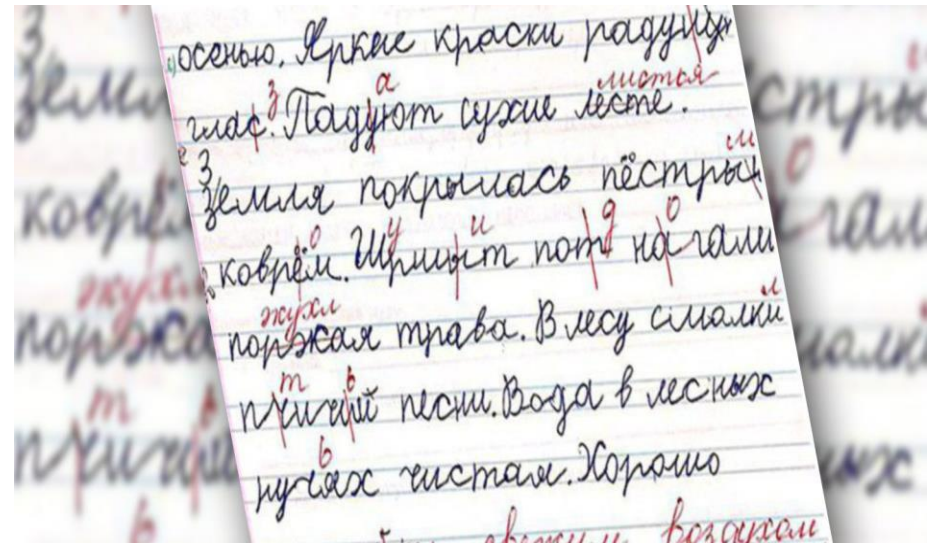 осенью. Яркие краски
листья
глас. Падуют сухие лесте.
Земля покрылась пёстрын
коврём. Шрмыт пот ногали
жухл
поржая трава. В лесу смалки
пчичий песни. Вода в лесных
ручях чистая. Хорошо
свежим воздухом